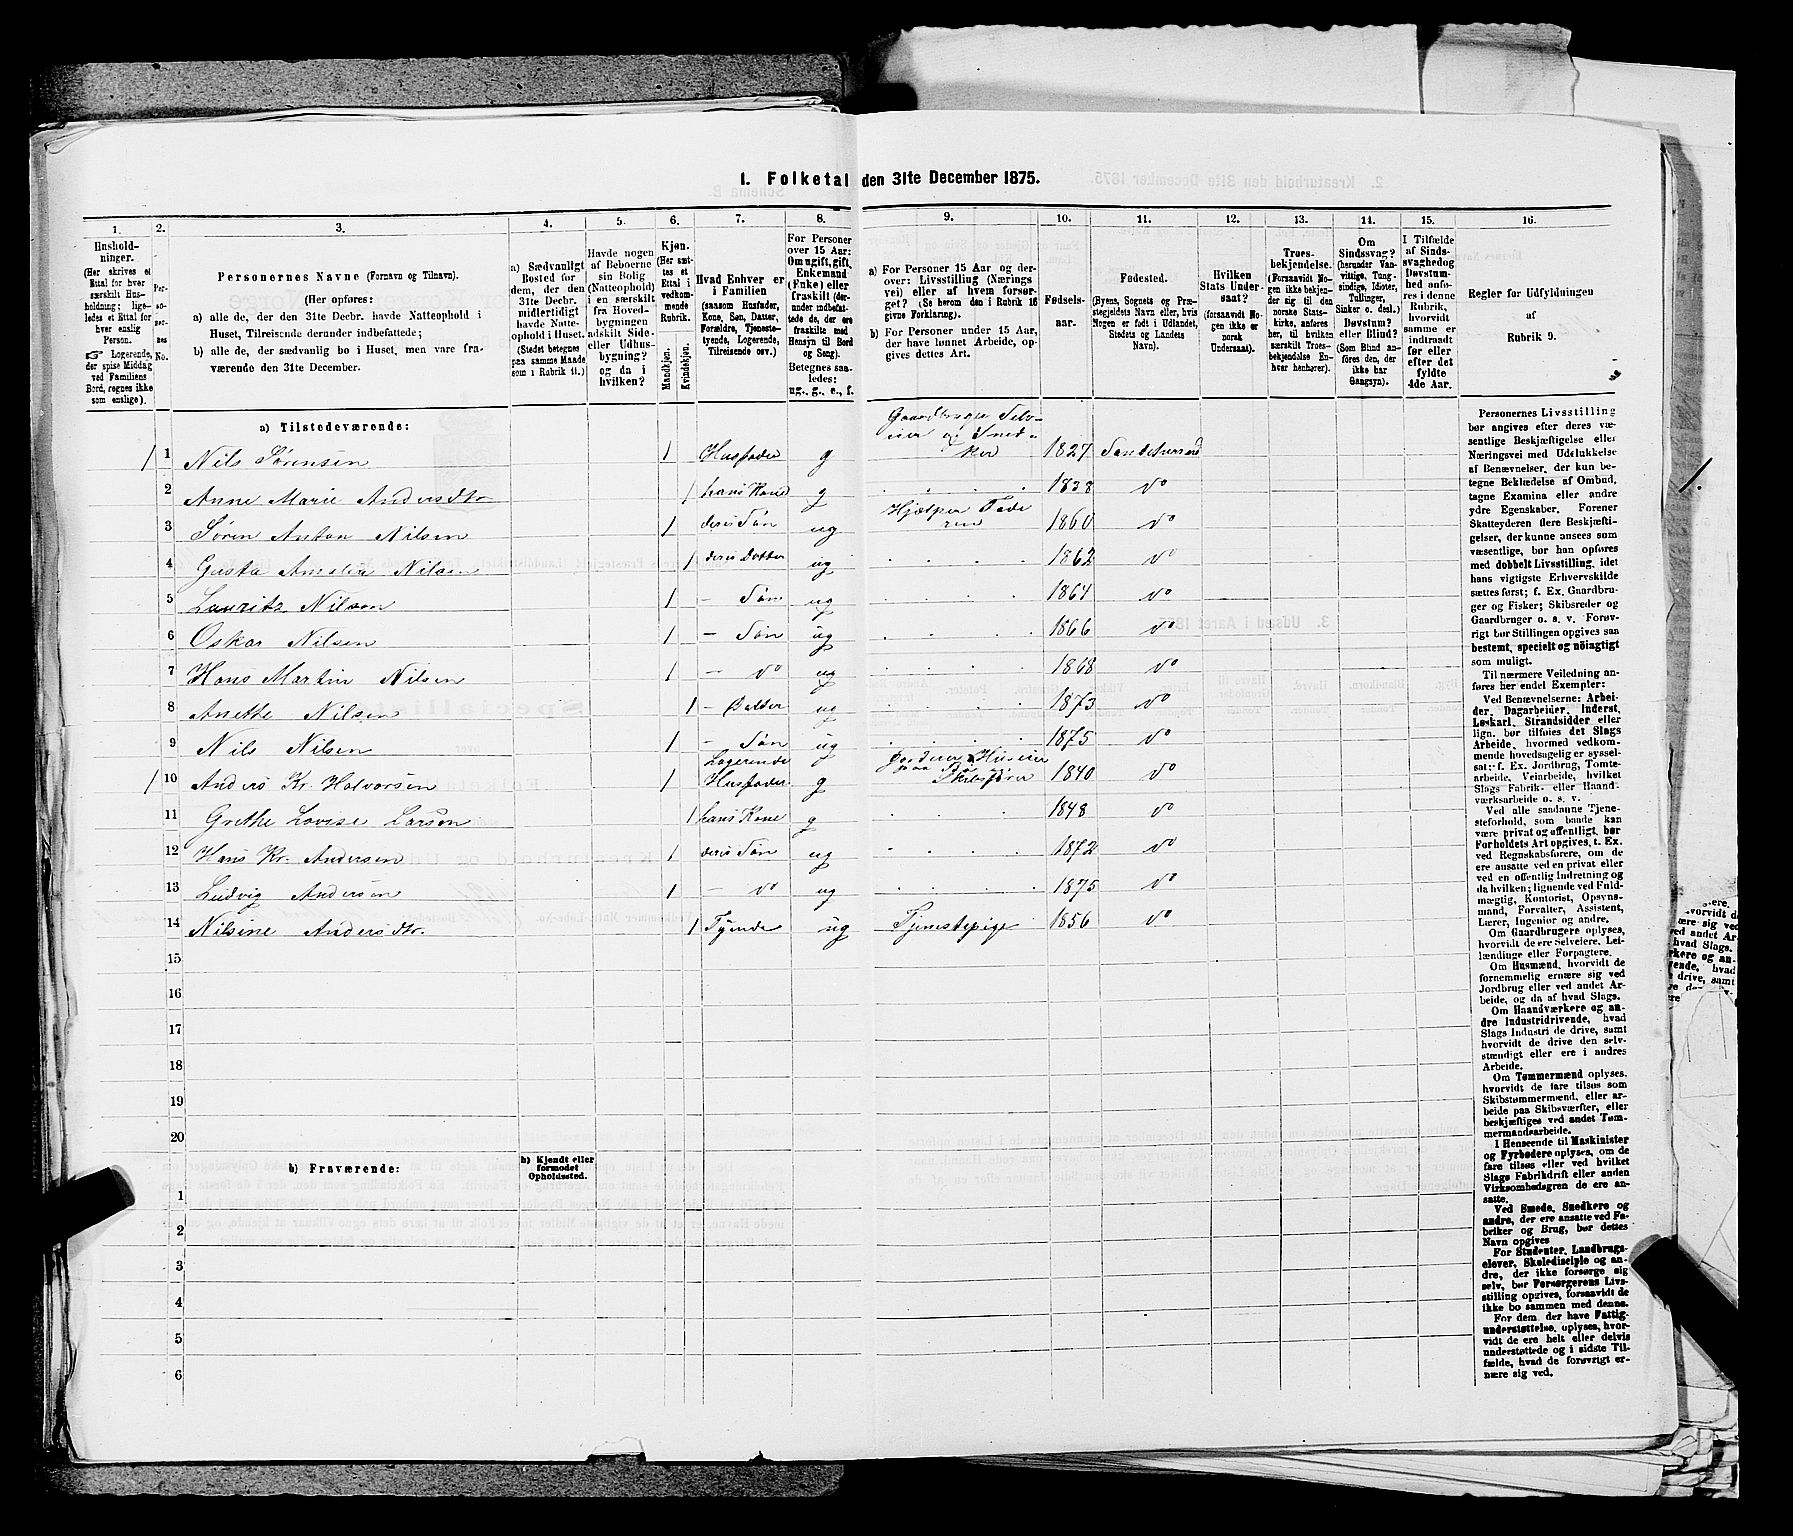 1. Folketal den 31te December 1875.
1. 2. 3. 4. 5. 6. 7. 8. 9. 10. 11. 12. 13. 14. 15. 16.
Hushold-
ninger.
(Her skrives et
Ettal for hver
særskilt Hus-
holdning; lige-
ledes et Ettal for
hver enslig
Person.
☞ Logerende,
der spise Middag
ved Familiens
Bord, regnes ikke
som enslige).
Per-
so-
ner-
nes
No.
Personernes Navne (Fornavn og Tilnavn).
(Her opføres:
a) alle de, der den 31te Decbr. havde Natteophold i
Huset, Tilreisende derunder indbefattede;
b) alle de, der sædvanlig bo i Huset, men vare fra-
værende den 31te December.
a) Sædvanligt
Bosted for
dem, der den
31te Decbr.
midlertidigt
havde Natte-
ophold i Huset.
(Stedet betegnes
paa samme Maade
som i Rubrik 11.)
Havde nogen
af Beboerne
sin Bolig
(Natteophold)
i en særskilt
fra Hoved-
bygningen
adskilt Side-
eller Udhus-
bygning?
og da i
hvilken?
Kjøn.
(Her sæt-
tes et
Ettal i
vedkom-
mende
Rubrik.
Mandkjøn.
Kvindekjøn.
Hvad Enhver er
i Familien
(saasom Husfader,
Kone, Søn, Datter,
Forældre, Tjeneste-
tyende, Logerende,
Tilreisende osv.).
For Personer
over 15 Aar:
Om ugift, gift,
Enkemand
(Enke) eller
fraskilt (der-
under indbefat-
tede de, der ere
fraskilte med
Hensyn til Bord
og Seng).
Betegnes saa-
ledes:
ug., g., e., f.
a) For Personer 15 Aar og der-
over: Livsstilling (Nærings
vei) eller af hvem forsør-
get? (Se herom den i Rubrik 16
givne Forklaring).
b) For Personer under 15 Aar,
der have lønnet Arbeide, op-
gives dettes Art.
Fødsels-
aar.
Fødested.
(Byens, Sognets og Præ-
stegjeldets Navn eller, hvis
Nogen er født i Udlandet,
Stedets og Landets
Navn).
Hvilken
Stats Under-
saat?
(forsaavidt No-
gen ikke er
norsk
Undersaat).
Troes-
bekjendelse.
(Forsaavidt No-
gen ikke bekjen-
der sig til den
norske Stats-
kirke, anføres
her, til hvilken
særskilt Troes-
bekjendelse En-
hver henhører).
Om
Sindssvag?
(herunder Van-
vittige, Tung-
sindige, Idioter,
Tullinger,
Sinker o. desl.)
Døvstum?
eller Blind?
(Som Blind an-
føres den, der
ikke har
Gangsyn).
I Tilfælde
af Sinds-
svaghed og
Døvstum-
hed anfø-
res i denne
Rubrik,
hvorvidt
samme er
indtraadt
før eller
efter det
fyldte
4de Aar.
Regler for Udfyldningen
af
Rubrik 9.
a) Tilstedeværende:
1 1 Nils Sørensen 1 Husfader g Gaardbruger Selv- eier og Sned- ker 1827
2 Anne Marie Andersdtr 1 hans Kone g 1838 do
3 Søren Anton Nilsen 1 deres Søn ug Hjælper Fade ren 1860 do
4 Gusta Amalia Nilsen 1 deres Datter ug 1862 do
5 Lauritz Nilsen 1 - Søn ug 1864 do
6 Oskar Nilsen 1 - Søn ug 1866 do
7 Hans Martin Nilsen 1 - do ug 1868 do
8 Anethe Nilsen 1 - Datter ug 1873 do
9 Nils Nilsen 1 - Søn ug 1875 do
1 10 Anders Kr. Halvorsen 1 Logerende Husfader g Skibsfører 1840 do
11 Grethe Lovise Larsen 1 hans Kone g 1848 do
12 Hans Kr. Andersen 1 deres Søn ug 1872 do
13 Ludvig Andersen 1 - do ug 1875 do
14 Nilsine Andersdtr. 1 Tyende ug Tjenestepige 1856 do
15
16
17
18
19
20
b) Fraværende:
b) Kjendt eller
formodet
Opholdssted.
1
2
3
4
5
6
Personernes Livsstilling
bør angives efter deres væ-
sentlige Beskjæftigelse eller
Næringsvei med Udelukkelse
af Benævnelser, der kun be-
tegne Beklædelse af Ombud,
tagne Examina eller andre
ydre Egenskaber. Forener
Skatteyderen flere Beskjæfti-
gelser, der kunne ansees som
væsentlige, bør han opføres
med dobbelt Livsstilling, idet
hans vigtigste Erhvervskilde
sættes først; f. Ex. Gaardbru-
ger og Fisker; Skibsreder og
Gaardbruger o. s. v. Forøv-
rigt bør Stillingen opgives saa
bestemt, specielt og nöiagtigt
som muligt.
Til nærmere Veiledning an-
føres her endel Exempler:
Ved Benævnelserne: Arbei-
der, Dagarbeider, Inderst,
Løskarl, Strandsidder eller
lign. bør tilføies det Slags
Arbeide, hvormed vedkom-
mende hovedsagelig er syssel-
sat; f. Ex. Jordbrug, Tomte-
arbeide, Veiarbeide, hvilket
Slags Fabrik- eller Haand-
værksarbeide o. s. v.
Ved alle saadanne Tjene-
steforhold, som baade kan
være privat og offentligt, bør
Forholdets Art opgives, t. Ex.
ved Regnskabsførere, om de
ere ansatte ved en privat eller
ved en offentlig Indretning og
da hvilken; lignende ved Fuld-
mægtig, Kontorist, Opsyns-
mand, Forvalter, Assistent,
Lærer, Ingeniør og andre.
Om Gaardbrugere oplyses,
hvorvidt de ere Selveiere, Lei-
lændinge eller Forpagtere.
Om Husmænd, hvorvidt de
fornemmelig ernære sig ved
Jordbrug eller ved andet Ar-
beide, og da af hvad Slags.
Om Haandværkere og an-
dre Industridrivende, hvad
Slags Industri de drive, samt
hvorvidt de drive den selv-
stændigt eller ere i andres
Arbeide.
Om Tømmermænd oplyses,
hvorvidt de fare tilsøs som
Skibstømmermænd, eller ar-
beide paa Skibsværfter, eller
beskjæftiges ved andet Tøm-
mermandsarbeide.
I Henseende til Maskinister
og Fyrbødere oplyses, om de
fare tilsøs eller ved hvilket
Slags Fabrikdrift eller anden
Virksomhedsgren de ere an-
satte.
Ved Smede, Snedkere og
andre, der ere ansatte ved Fa-
briker og Brug, bør dettes
Navn opgives
For Studenter, Landbrugs-
elever, Skoledisciple og an-
dre, der ikke forsørge sig
selv, bør Forsørgerens Livs-
stilling opgives, forsaavidt de
ikke bo sammen med denne.
For dem, der have Fattig-
understøttelse, oplyses, hvor-
vidt de ere helt eller delvis
understøttede og i sidste Til-
fælde, hvad de forøvrigt er-
nære sig ved.